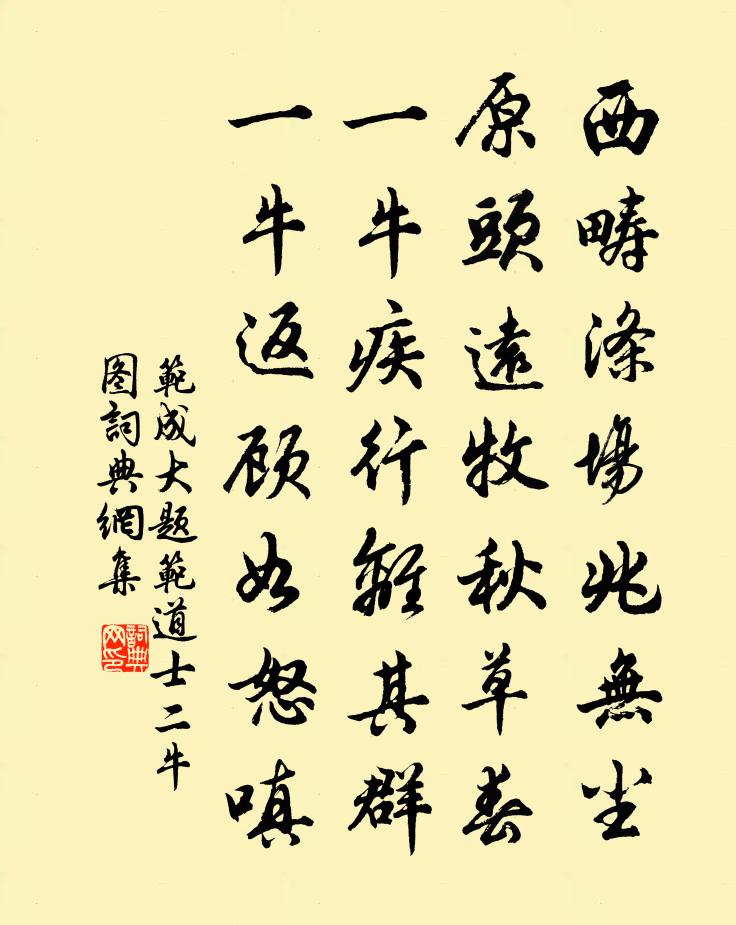 西疇滌場兆無塵
原頭遠牧秋草春
一牛疾行離其群
一牛返顾如怒嗔
範成大题範道士二牛
图詞典網集
詞典
网印